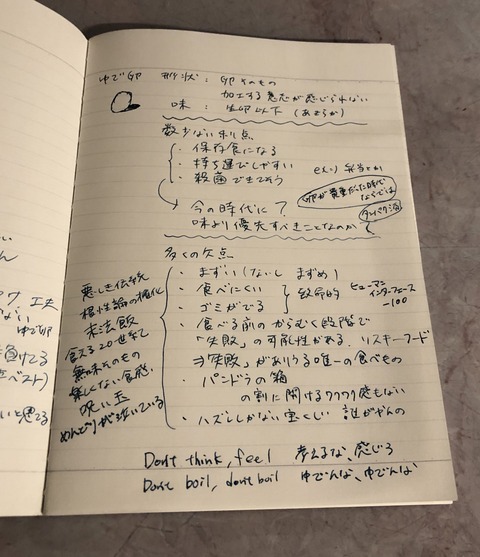 ゆで卵 形状: 卵そのもの
加工する意志が感じられない
味: 生卵以下(あきらか)
数少ない利点
・保存食になる
・持ち運びしやすい ex.) 弁当とか
・殺菌できてそう
卵が貴重だった時代
ならでは
タンパク源
→ 今の時代に?
味より優先すべきことなのか
多くの欠点
・まずい(ないし まずめ)
・食べにくい
・ゴミがでる
致命的 ヒューマン
インターフェース
-100
・食べる前のからむく段階で
「失敗」の可能性がある リスキーフード
「失敗」がありうる唯一の食べもの
・パンドラの箱
の割に開けるワクワク感もない
・ハズレしかない宝くじ 誰がやんの
悪しき伝統
根性論の権化
末法飯
食える20世紀
無味そのもの
楽しくない食感
呪い玉
めんどりが泣いている
Don't think, feel 考えるな、感じろ
Don't boil, don't boil ゆでんな、ゆでんな
ん
工夫
ない
ゆで卵
負けてる
ベスト)
いと思ってる